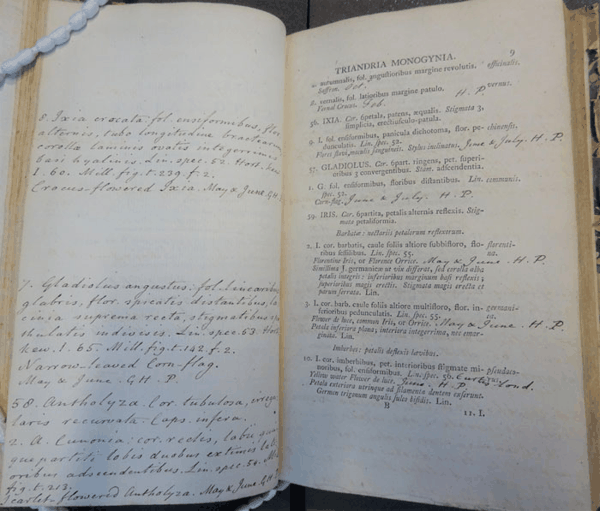 8. Ixia crocata: fol. ensiformibus, flor.
alternis, tubo longitudine bractearum
corollæ laminis ovatis integerrimis
basi hyalinis. Lin. spec. 52. Hort. kew.
1. 60. Mill. fig. t. 239. f. 2.
Crocus-flowered Ixia. May & June. G.H.
7. Gladiolus angustus: fol. linearibus
glabris, flor. spicatis distantibus, la-
cinia suprema recta, stigmatibus spa-
thulatis indivisis. Lin. spec. 53. Hort.
kew. 1. 65. Mill. fig. t. 142. f. 2.
Narrow-leaved Corn-flag.
May & June. G H. P.
58. Antholyza Cor. tubulosa, irregu-
laris recurvata: Caps. infera.
2. A. Cunonia: cor. rectis, labii
que partiti lobis duobus extimis lati-
oribus adscendentibus. Lin. spec. 54. Mill.
fig. t. 113.
Scarlet-flowered Antholyza. May & June. G H
TRIANDRIA MONOGYNIA. 9
autumnalis, fol. angustioribus margine revolutis. officinalis.
Saffron. Oct.
2. vernalis, fol. latioribus margine patulo. vernus.
Vernal Crocus. Feb. H. P.
56. IXIA. Cor. 6petala, patens, æqualis. Stigmata 3,
simplicia, erectiusculo-patula.
9. I. fol. ensiformibus, panicula dichotoma, flor. pe- chinensis.
dunculatis. Lin. spec. 52.
Flores flavi, maculis sanguineis. Stylus inclinatus. June & July. H. P.
57. GLADIOLUS. Cor. 6part. ringens, pet. superi-
oribus 3 convergentibus. Stam. adscendentia.
1. G. fol. ensiformibus, floribus distantibus. Lin. communis.
spec. 52.
Corn-flag. June & July. H. P.
59. IRIS. Cor. 6partita, petalis alternis reflexis. Stig-
mata petaliformia.
Barbatæ: nectariis petalorum reflexorum.
2. I. cor. barbatis, caule foliis altiore subbifloro, flo- florenti-
ribus sessilibus. Lin. spec. 55. na.
Florentine Iris, or Florence Orrice. May & June. H. P.
Simillima I. germanicæ ut vix differat, sed corolla alba
petalis integris: inferioribus marginum basi reflexis;
superioribus magis erectis. Stigmata magis erecta et
parum serrata. Lin.
3. I. cor. barb. caule foliis altiore multifloro, flor. in- germani-
ferioribus pedunculatis. Lin. spec. 55. ca.
Flower de luce, common Iris, or Orrice. May & June. H. P.
Petala inferiora plana, interiora integerrima, nec emar-
ginata. Lin.
Imberbes: petalis deflexis lævibus.
10. I. cor. imberbibus, pet. interioribus stigmate mi- pseudaco-
noribus, fol. ensiformibus. Lin. spec. 56. Curtis. Lond. rus.
Yellow water Flower de luce. June. H. P.
Petala exteriora utrinque ad filamenta dentem exserunt.
Germen trigonum angulis sulco bifidis. Lin.
B
11. I.